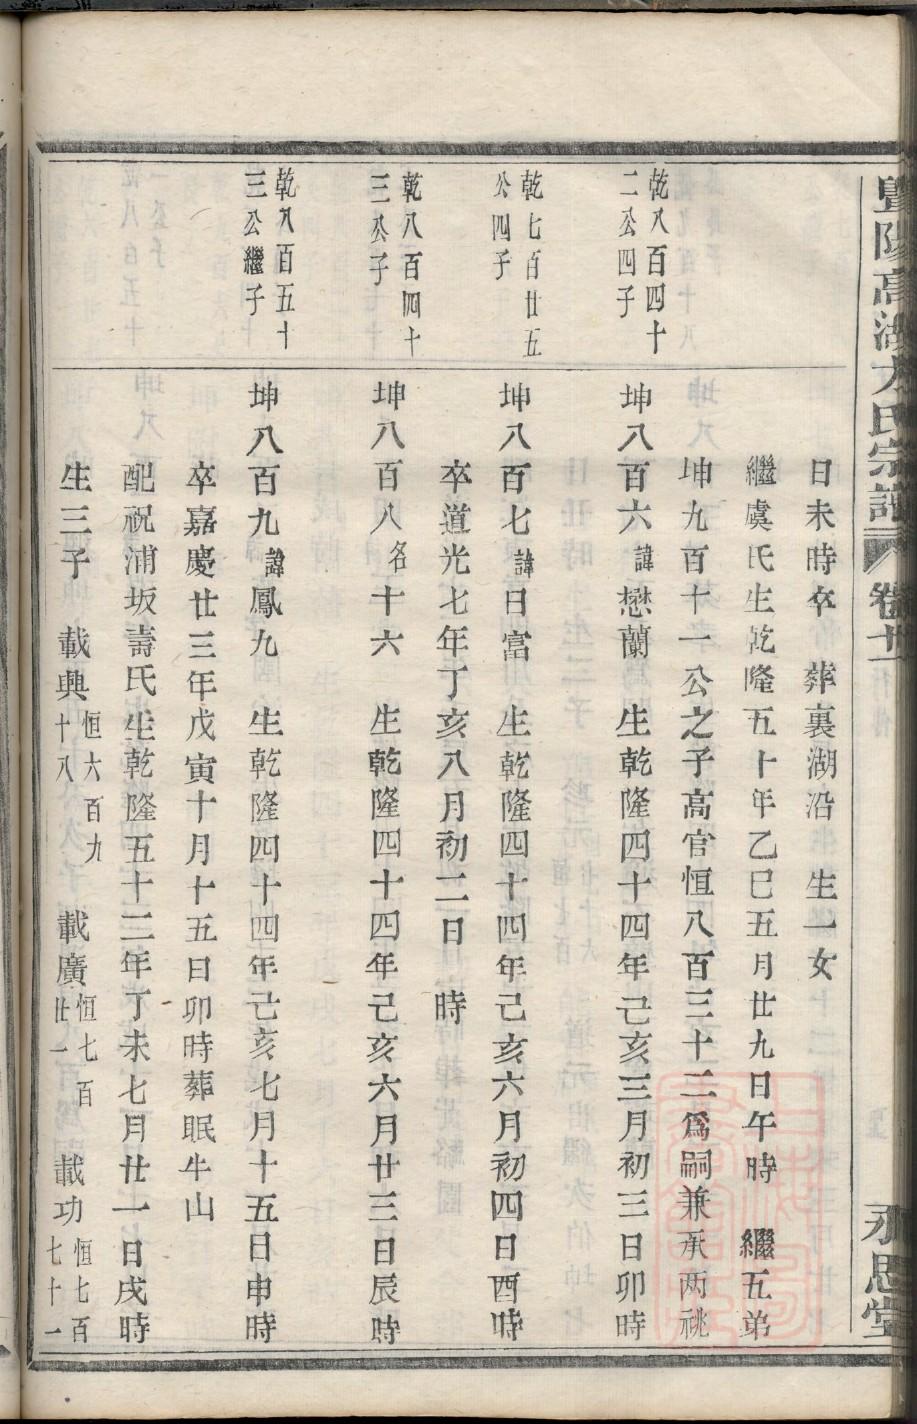 暨陽高湖方氏宗譜 卷十一 永思堂
日未時卒 葬裏湖沿 生一女
繼虞氏生乾隆五十年乙巳五月廿九日午時 繼五弟
坤九百十一公之子高官恒八百三十二為嗣兼承兩祧
乾八百四十
二公四子
坤八百六諱懋蘭 生乾隆四十四年己亥三月初三日卯時
乾七百廿五
公四子
坤八百七諱日富 生乾隆四十四年己亥六月初四日酉時
卒道光七年丁亥八月初二日 時
乾八百四十
三公子
坤八百八名十六 生乾隆四十四年己亥六月廿三日辰時
乾八百五十
三公繼子
坤八百九諱鳳九 生乾隆四十四年己亥七月十五日申時
卒嘉慶廿三年戊寅十月十五日卯時葬眠牛山
配祝浦坂壽氏生乾隆五十二年丁未七月廿一日戌時
生三子 載興恒六百九十八 載廣恒七百廿一 載功恒七百七十一